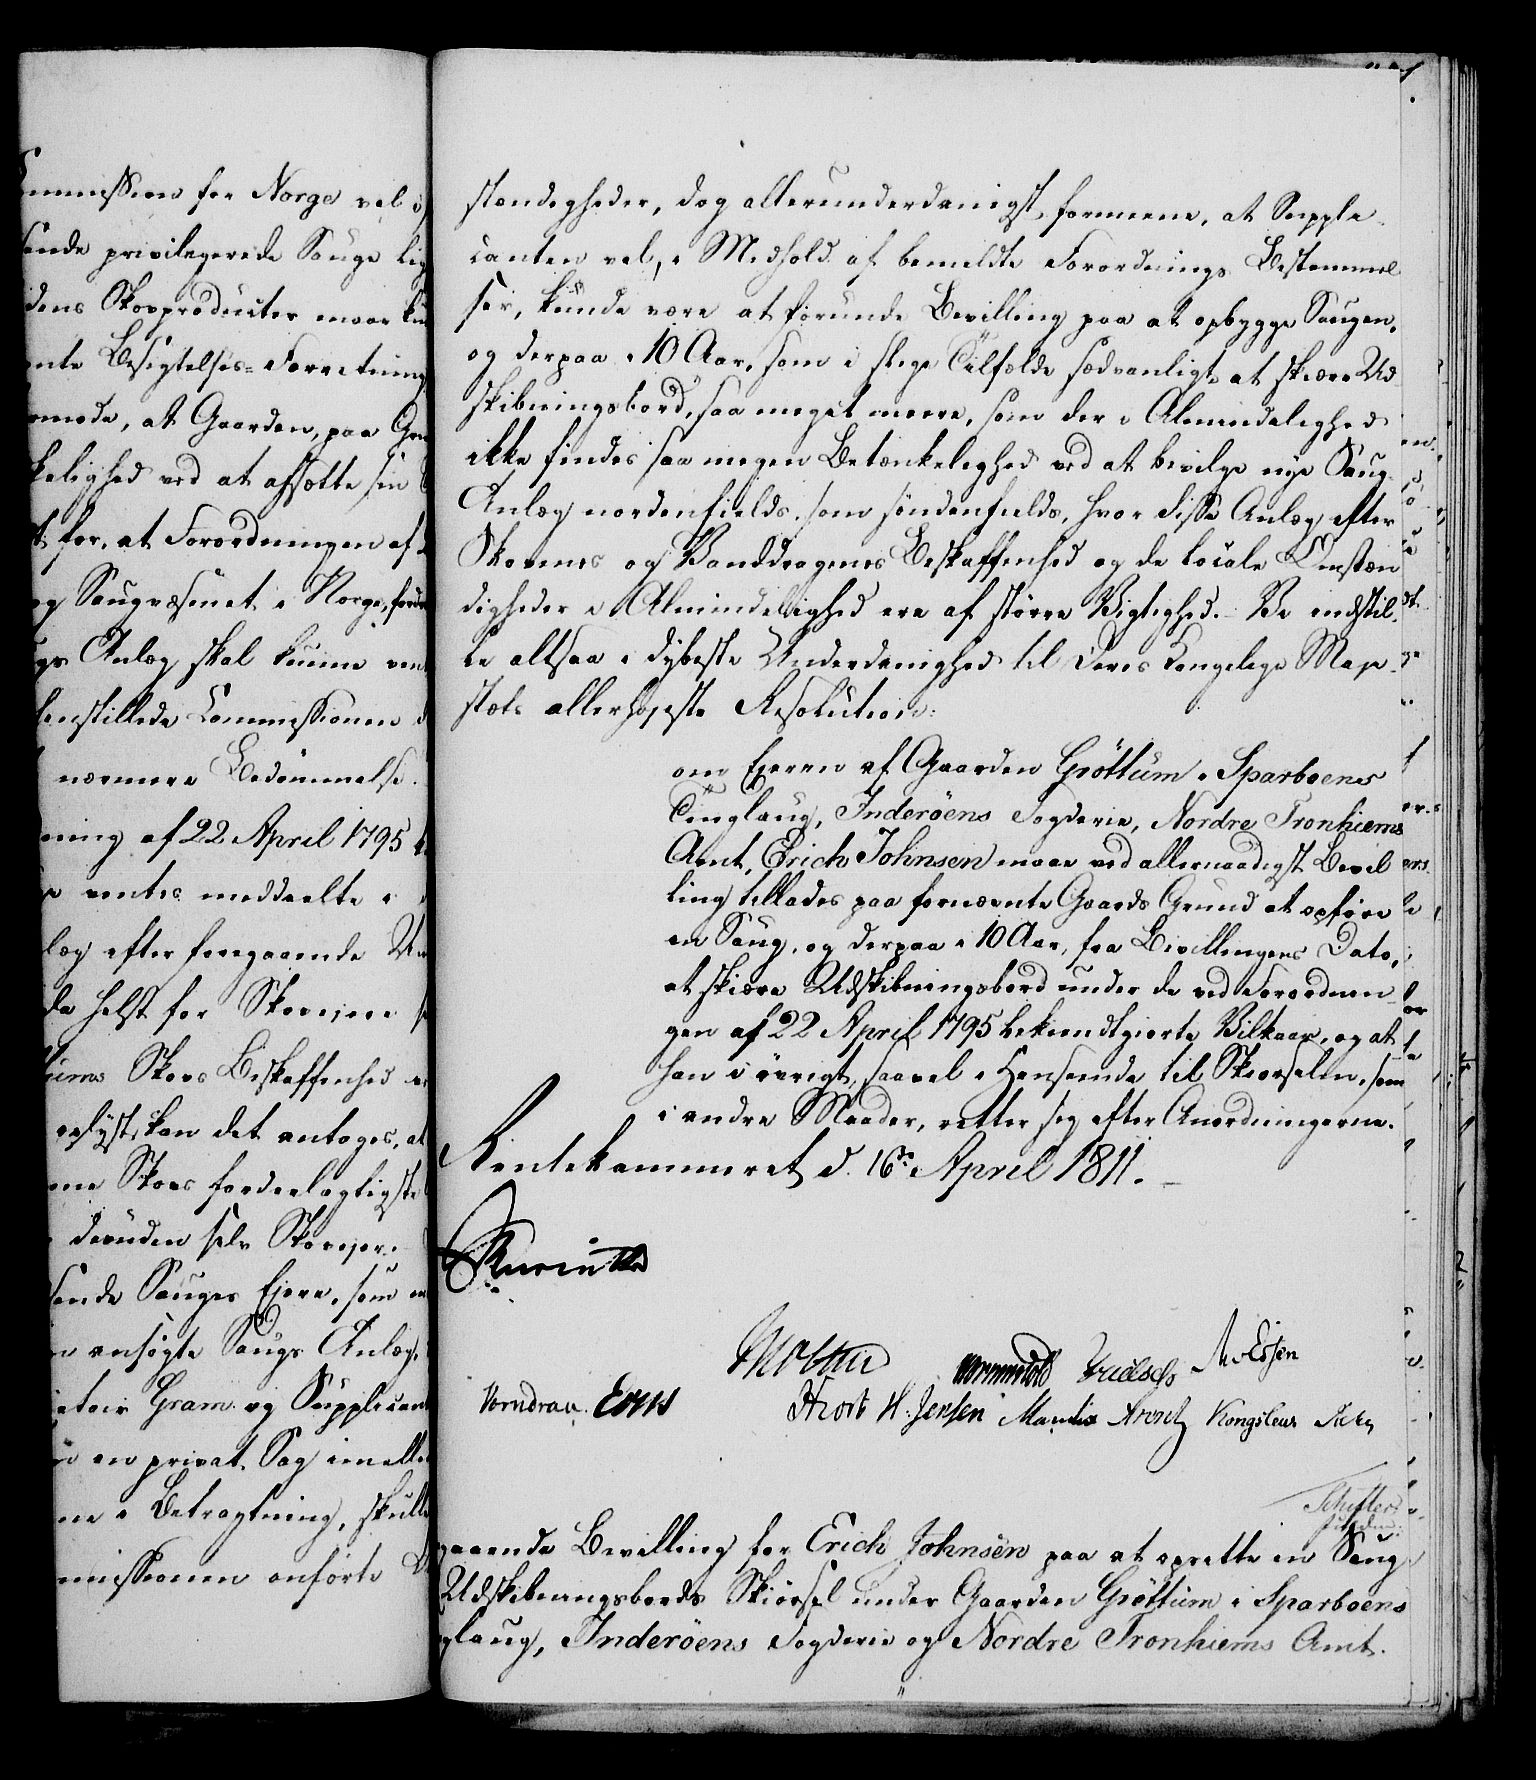 mmission for Norge vel
ende privilegerede Sauge
dens Skovproducter maae
nte Besigtelses-Forretning
mode, at Gaarden, paa
kelighed ved at afsætte sin
for, at Forordningen af
og Saugvæsenet i Norge,
gs Anlæg skal kunne
lenstillede Commissionen
nærmere Bedømmelse.
ning af 22 April 1795
ventes meddeelte i
læg efter foregaaende
da helst for Skoveiere
ums Skovs Beskaffenhed
oplyst, kan det antages, at
ne Skovs fordeelagtigste
desuden selv Skoveier.
ende Sauges Ejere, som
ansøgte Saugs Anlæg,
Gram og Supplicant
en privat Sag imelle
ne i Betragtning, skulle
missionen anførte
stændigheder, dog allerunderdanigst formeene, at Supple-
canten vel, i Medhold af bemeldte Forordnings Bestemmel
ser, kunde være at forunde Bevilling paa at opbygge Saugen,
og derpaa i 10 Aar, som i slige Tilfælde sædvanligt, at skiære Ud
skibningsbord, saa meget meere, som der i Almindelighed
ikke findes saa megen Betænkelighed ved at bevilge nye Saug-
Anlæg nordenfields, som søndenfields, hvor disse Anlæg efter
Skovenes og Vanddragenes Beskaffenhed og de locale Omstæn
digheder i Almindelighed ere af større Vigtighed. Vi indstil-
le altsaa i dybeste Underdanighed til Deres Kongelige Maje-
stæts allerhøjeste Resolution:
om Ejeren af Gaarden Gröttum i Sparboens
Tinglaug, Inderöens Fogderie, Nordre Tronhiems
Amt, Erich Johnsen maae ved allernaadigst Bevil
ling tillades paa fornævnte Gaards Grund at opføre
en Saug, og derpaa i 10 Aar, fra Bevillingens Dato,
at skiære Udskibningsbord under de ved Forordnin-
gen af 22 April 1795 bekiendtgiorte Vilkaar, og at
han i øvrigt, saavel i Henseende til Skiørselen, som
i andre Maader, retter sig efter Anordningerne.
Rentekammeret d. 16de April 1811.
Wormskiold
Frost H. Jensen Manthe
gaaende Bevilling for Erich Johnsen paa at oprette en Saug
Udskibningsbords Skiørsel under Gaarden Gröttum i Sparboens
glaug, Inderöens Fogderie og Nordre Tronhiems Amt.